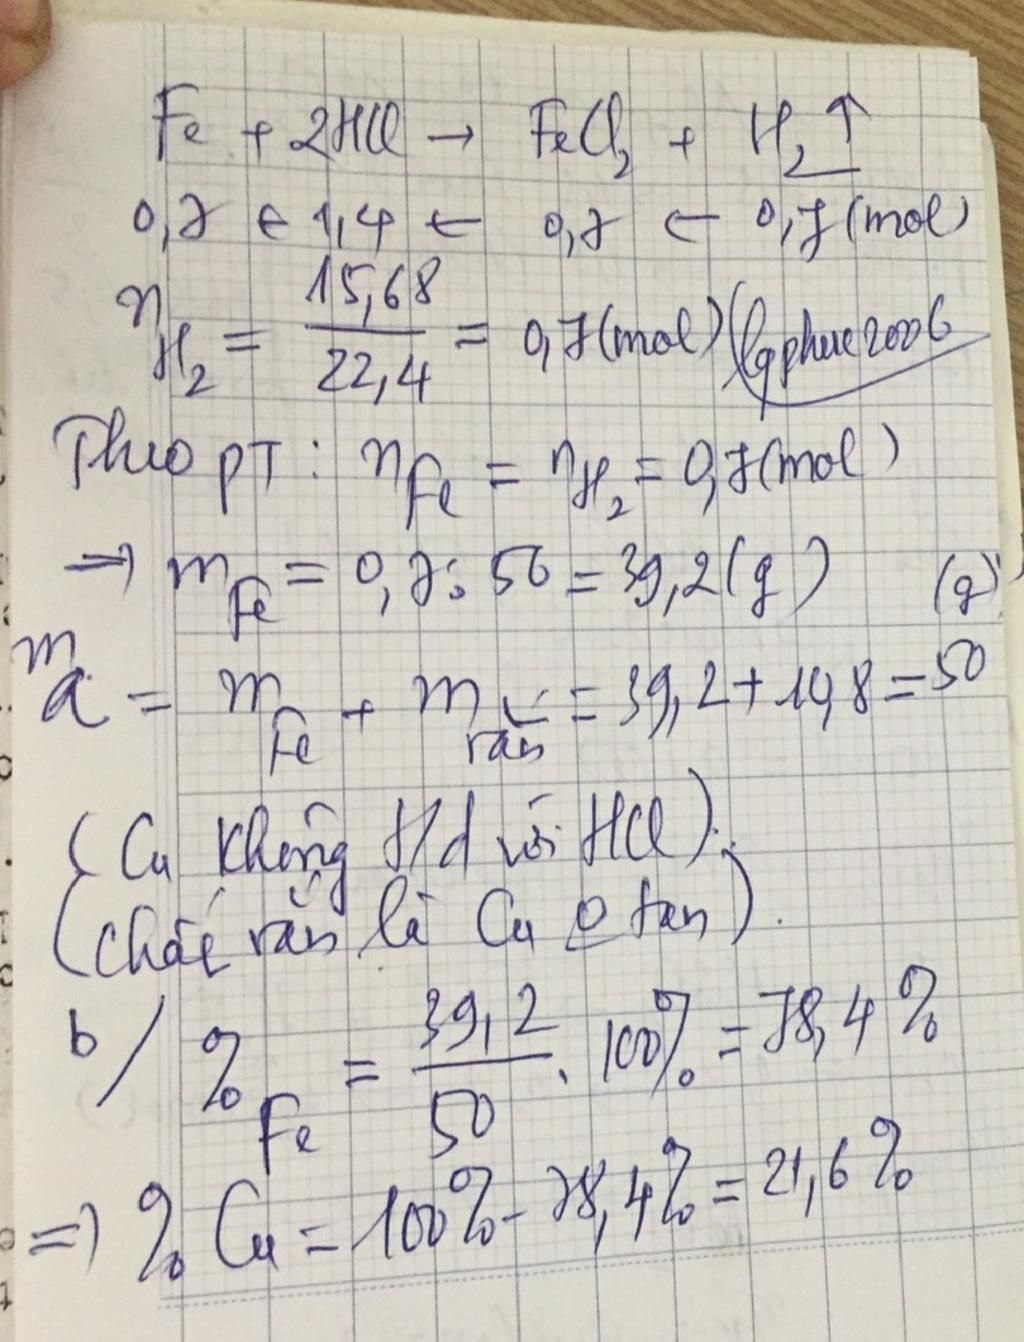 Fe + 2HCl → FeCl₂ + H₂↑
0,7 ← 1,4 ← 0,7 ← 0,7 (mol)
n H₂ = 15,68 / 22,4 = 0,7 (mol) (lgphuc2006
Theo pT : n Fe = n H₂ = 0,7 (mol)
=> m Fe = 0,7 . 56 = 39,2 (g)
m a = m Fe + m rắn = 39,2 + 10,8 = 50 (g)
(Cu không t/d với HCl).
(chất rắn là Cu o tan).
b / % Fe = 39,2 / 50 . 100% = 78,4 %
=> % Cu = 100% - 78,4% = 21,6 %